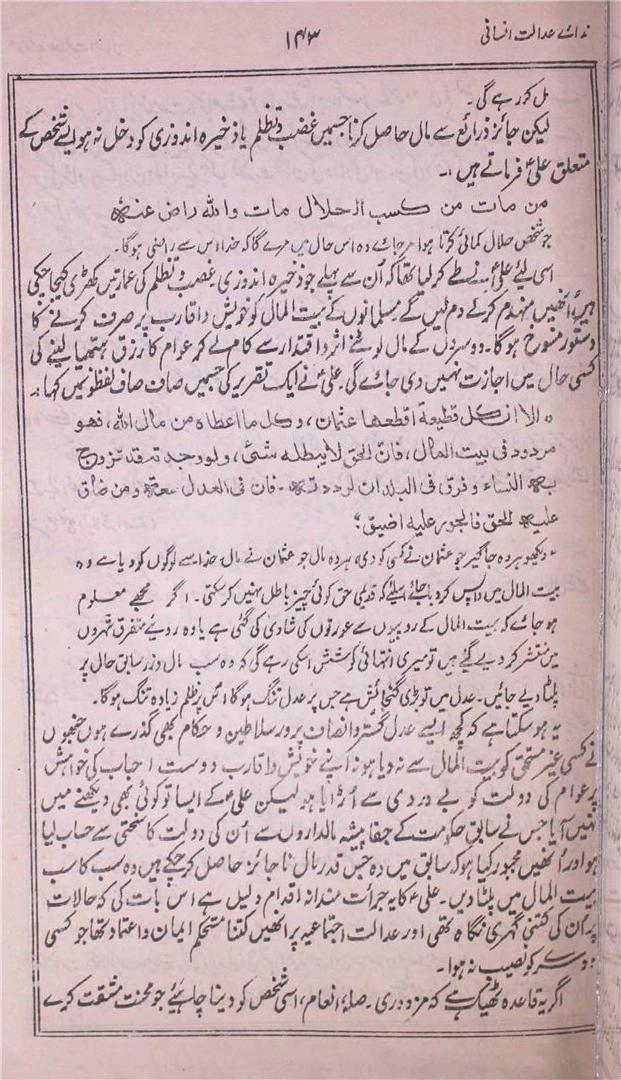 ندائے عدالت انسانی
۱۴۳
مل کر رہے گی۔
لیکن جائز ذرائع سے مال حاصل کرنا جسمیں غضب و تظلم یا ذخیرہ اندوزی کو دخل نہ ہو ایسے شخص کے
متعلق علیؑ فرماتے ہیں :۔
من مات من کسب الحلال مات والله راض عنه
جو شخص حلال کمائی کرتا ہوا مر جائے وہ اس حال میں مرے گا کہ خدا اس سے راضی ہوگا۔
اسی لئے علیؑ نے طے کر لیا تھا کہ اُن سے پہلے جو ذخیرہ اندوزی۔ غصب و تظلم کی عمارتیں کھڑی کیجا چکی
ہیں اُنھیں منہدم کر کے دم لیں گے مسلمانوں کے بیت المال کو خویش و اقارب پر صرف کرنے کا
دستور منسوخ ہوگا۔ دوسروں کے مال لوٹنے اثر و اقتدار سے کام لے کر عوام کا رزق ہتھیا لینے کی
کسی حال میں اجازت نہیں دی جائے گی۔ علیؑ نے ایک تقریر کی جسمیں صاف صاف لفظوں میں کہا :۔
الا ان کل قطیعة اقطعها عثمان، وکل ما اعطاه من مال الله، فهو
مردود فی بیت المال، فان الحق لا یبطله شئ، ولو وجدته قد تزوج
به النساء وفرق فی البلدان لرددته۔ فان فی العدل سعة ومن ضاق
علیه الحق فالجور علیه اضیق؛
"دیکھو ہر وہ جاگیر جو عثمان نے کسی کو دی، ہر وہ مال جو عثمان نے مال خدا سے لوگوں کو دیا ہے وہ
بیت المال میں واپس کر دیا جائے اسلئے کہ قدیمی حق کوئی چیز باطل نہیں کر سکتی۔ اگر مجھے معلوم
ہو جائے کہ بیت المال کے روپیوں سے عورتوں کی شادی کی گئی ہے یا وہ روپئے متفرق شہروں
میں منتشر کر دیے گئے ہیں تو میری انتہائی کوشش اسکی رہے گی کہ وہ سب مال و زر سابق حال پر
پلٹا دیے جائیں۔ عدل میں تو بڑی گنجائش ہے جس پر عدل تنگ ہوگا اس پر ظلم زیادہ تنگ ہوگا۔
یہ ہو سکتا ہے کہ کچھ ایسے عدل گستر و انصاف پرور سلاطین و حکام بھی گذرے ہوں جنھوں
نے کسی غیر مستحق کو بیت المال سے نہ دیا ہو نہ اپنے خویش و اقارب دوست احباب کی خواہش
پر عوام کی دولت کو بے دردی سے اُڑایا ہو لیکن علیؑ کے ایسا تو کوئی بھی دیکھنے میں
نہیں آیا جس نے سابق حکومت کے جفا پیشہ مالداروں سے اُن کی دولت کا سختی سے حساب لیا
ہو اور اُنھیں مجبور کیا ہو کہ سابق میں وہ جس قدر مال ناجائز حاصل کر چکے ہیں وہ سب کا سب
بیت المال میں پلٹا دیں۔ علیؑ کا یہ جرأت مندانہ اقدام دلیل ہے اس بات کی کہ حالات
پر اُن کی کتنی گہری نگاہ تھی اور عدالت اجتماعیہ پر انھیں کتنا مستحکم ایمان و اعتماد تھا جو کسی
دوسرے کو نصیب نہ ہوا۔
اگر یہ قاعدہ ٹھیک ہے کہ مزدوری۔ صلہ، انعام، اسی شخص کو دینا چاہئے جو محنت مشقت کرے